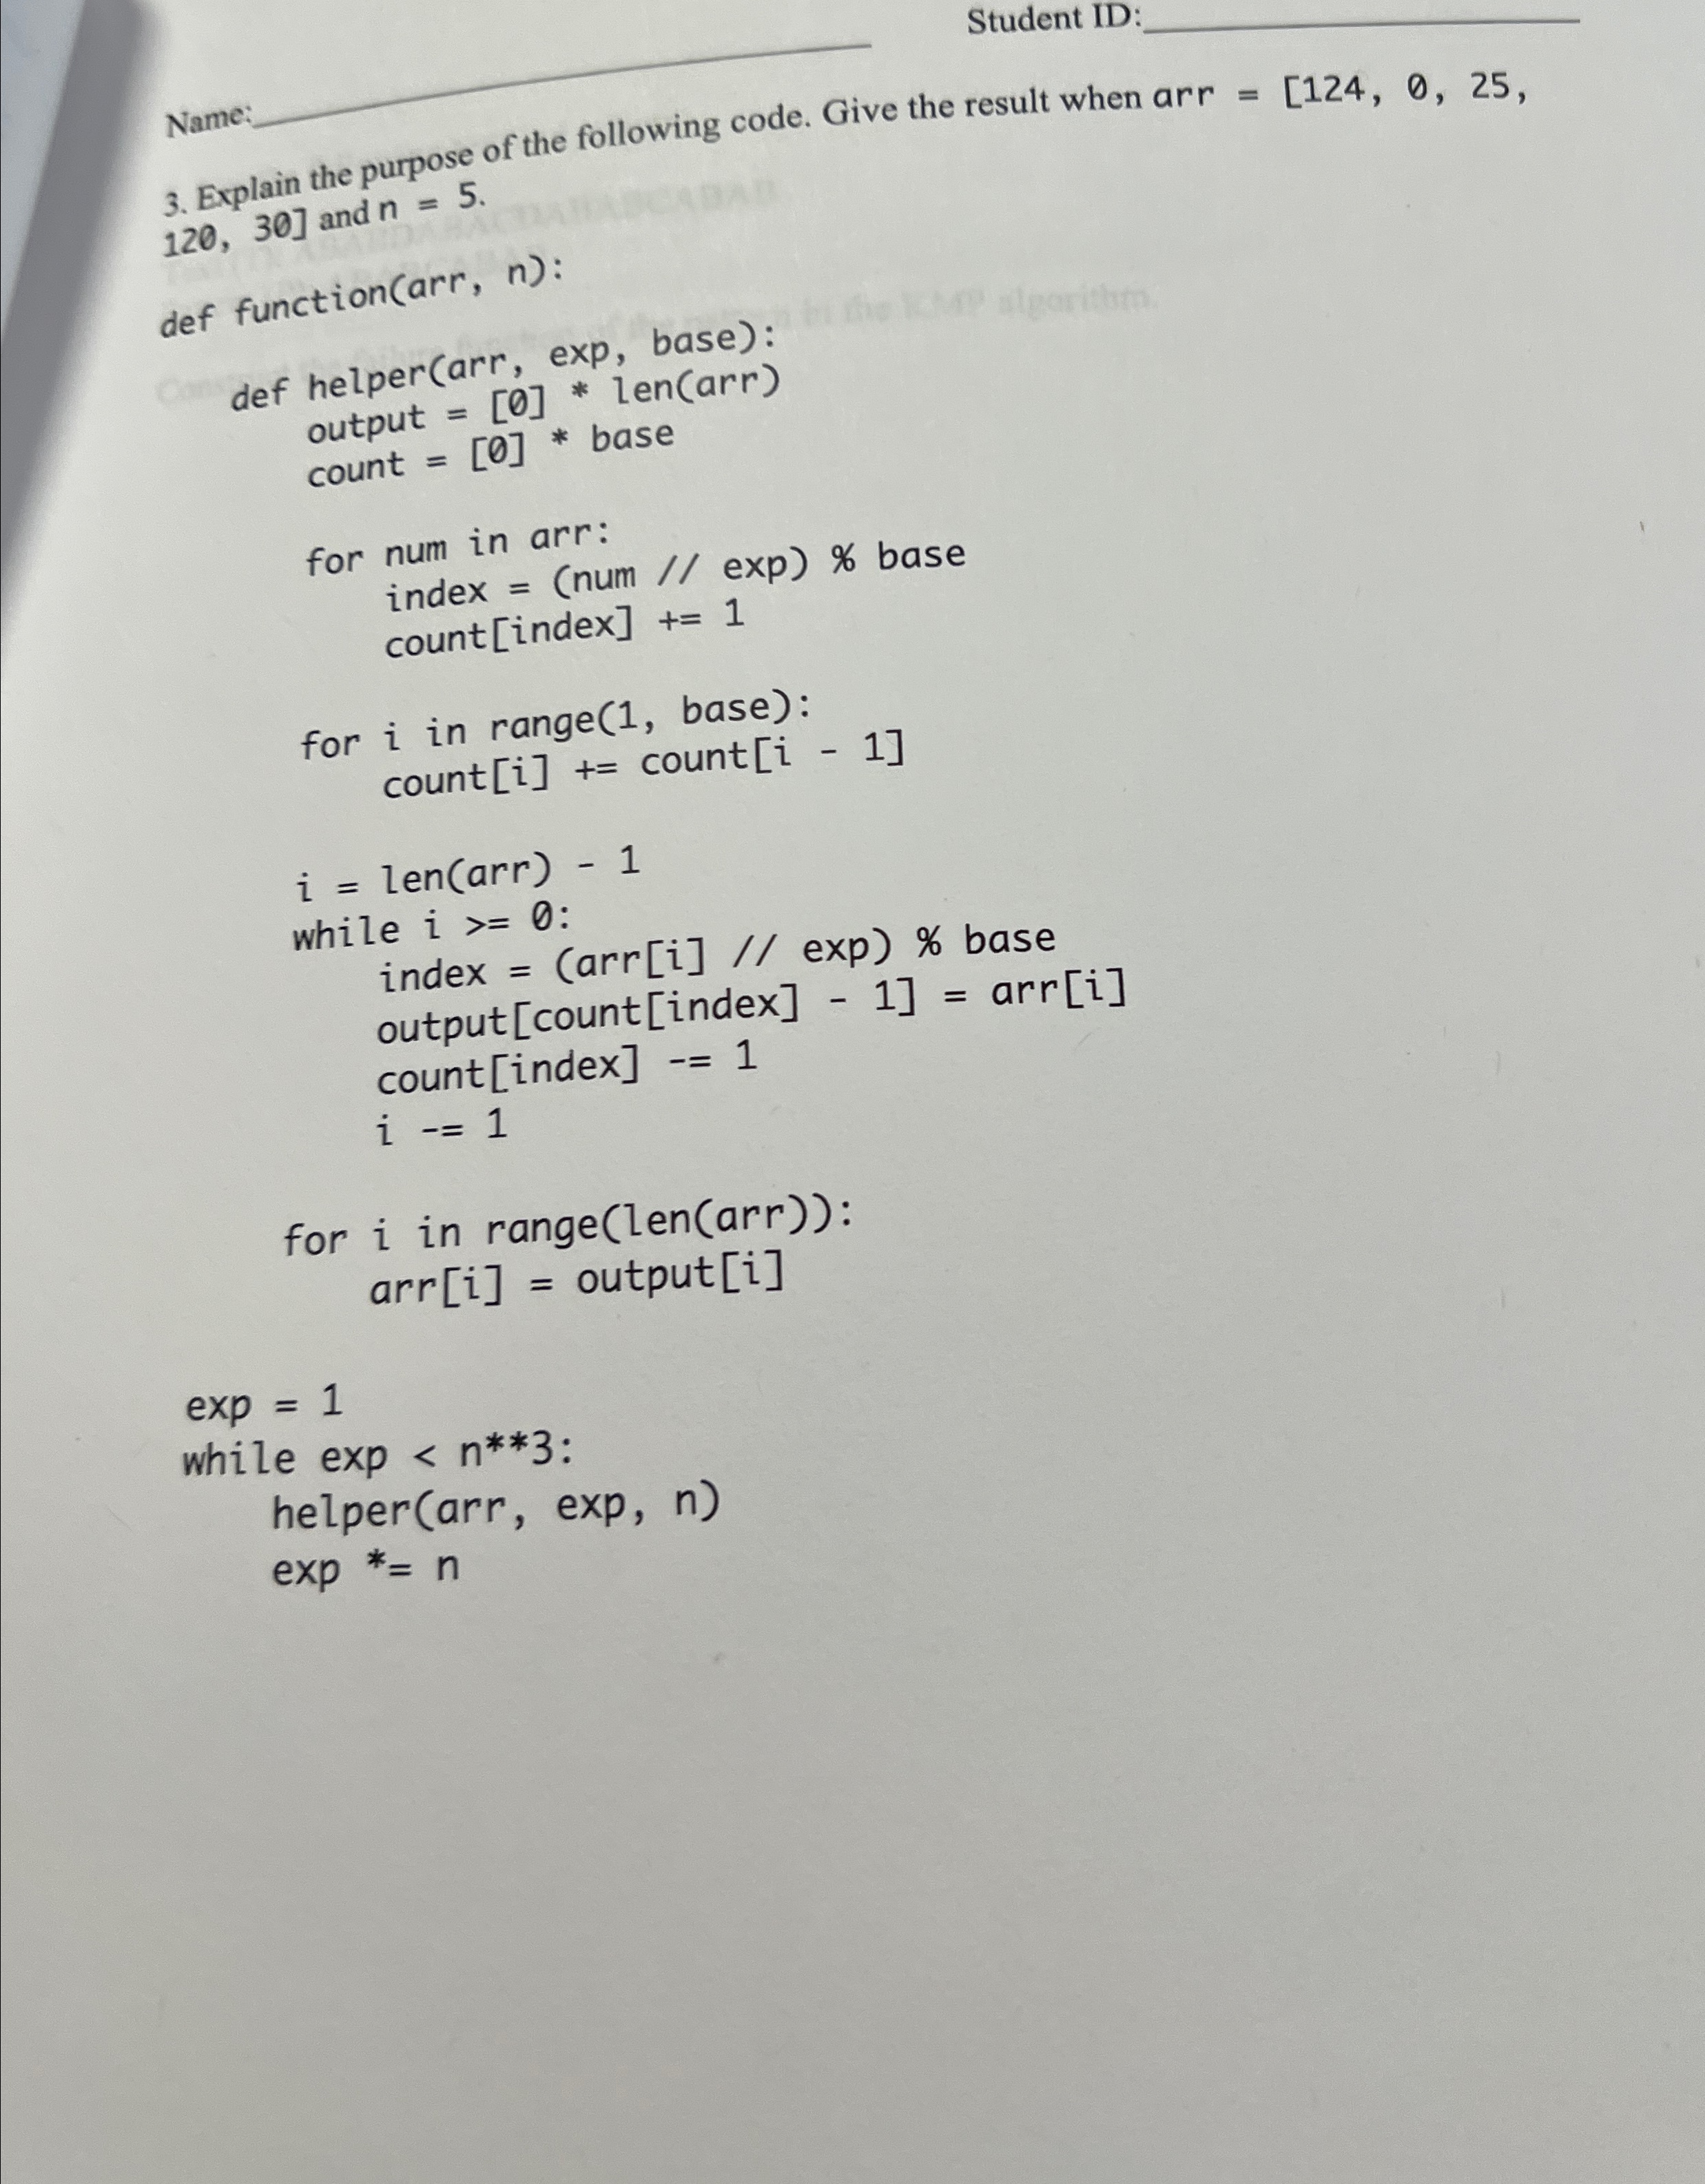 Student ID:
Name:
3. Explain the purpose of the following code. Give the result when arr = [124, 0, 25,
120, 30] and n = 5.
def function(arr, n):
def helper(arr, exp, base):
output = [0] * len(arr)
count = [0] * base
for num in arr:
index = (num // exp) % base
count[index] += 1
for i in range(1, base):
count[i] += count[i - 1]
i = len(arr) - 1
while i >= 0:
index = (arr[i] // exp) % base
output[count[index] - 1] = arr[i]
count[index] -= 1
i -= 1
for i in range(len(arr)):
arr[i] = output[i]
exp = 1
while exp < n**3:
helper(arr, exp, n)
exp *= n